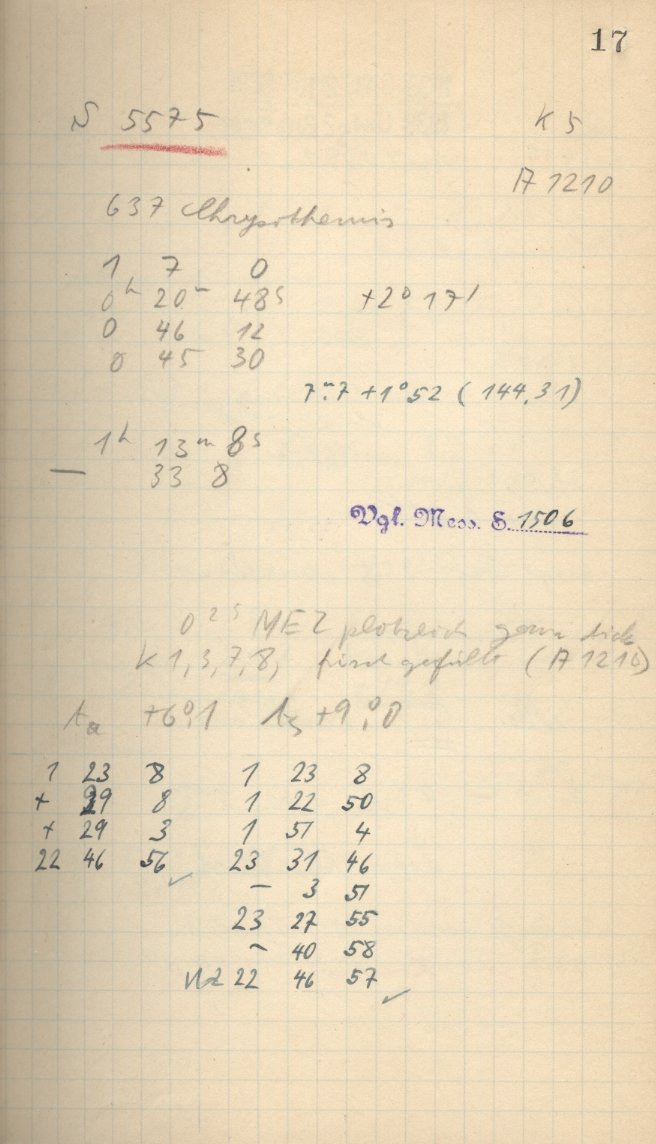 17
N 5575 K 5
A 1210
637 Chrysothemis
1 7 0
0h 20m 48s +2° 17'
0 46 12
0 45 30
7m.7 +1°52 (144,31)
1h 13m 8s
— 33 8
Vgl. Mess. S. 1506
0 25 MEZ plötzlich ganz dick
K 1, 3, 7, 8, frisch gefüllt (A 1210)
ta +6°.1 +9°.0
1 23 8 1 23 8
+ 29 8 1 22 50
+ 29 3 1 51 4
22 46 56 ✓ 23 31 46
– 3 51
23 27 55
– 40 58
22 46 57 ✓